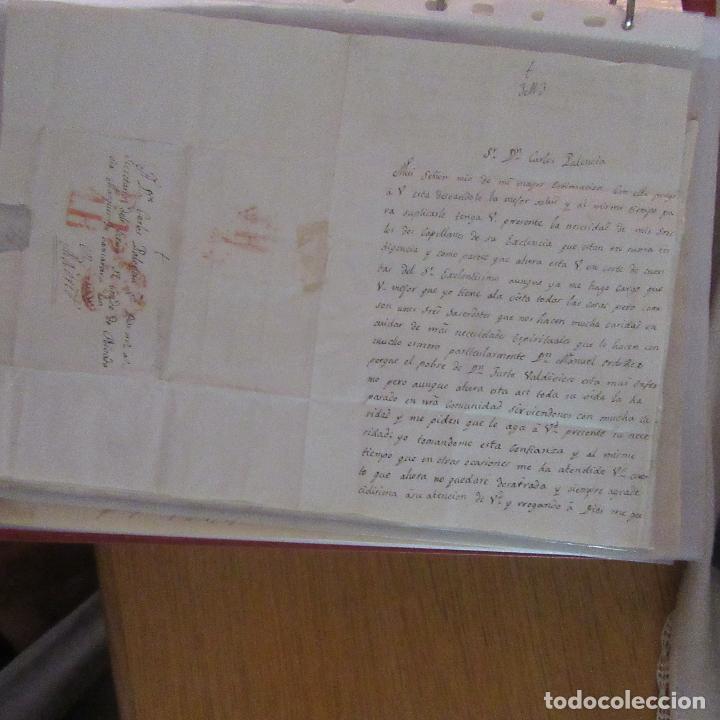 †
JMJ
Sr. Dn. Carlos Palencia
Mui Señor mio de mi mayor estimacion Con esta pongo
a V esta deseandole la mejor salud y al mismo tiempo pa
ra suplicarle tenga V presente la necesidad de mis Sres
los dos Capellanes de su Exelencia que estan en suma in
digencia y como parese que ahora esta V en corte de cuen
tas del Sr. Exelentisimo aunque ya me hago cargo que
Vd mejor que yo tiene a la vista todas las cosas pero como
son unos Sres Saserdotes que nos hacen mucha caridad en
cuidar de mas necesidades espirituales que lo hacen con
mucho esmero particularmente Dn. Manuel Ordoñez
porque el pobre de Dn. Justo Valdivieso esta mas enfer
mo pero aunque ahora esta asi toda su vida la ha
parado en nra Comunidad sirviendonos con mucha ca
ridad y me piden que le aga a Vd presente su nece
sidad; yo tomandome esta confianza y al mismo
tiempo que en otras ocasiones me ha atendido Vd creo
lo que ahora no quedare desairada y siempre agrade
cidisima a su atencion de Vd y rrogando a Dios me gu
†
A Dn. Carlos Palencia
Secretario del Exmo Sr.
Madrid
todocoleccion.net